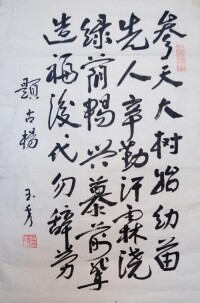 参天大树始幼苗
先人辛勤汗霖浇
绿荫暢兴慕前辈
造福後代勿辞劳
題古楊 玉秀